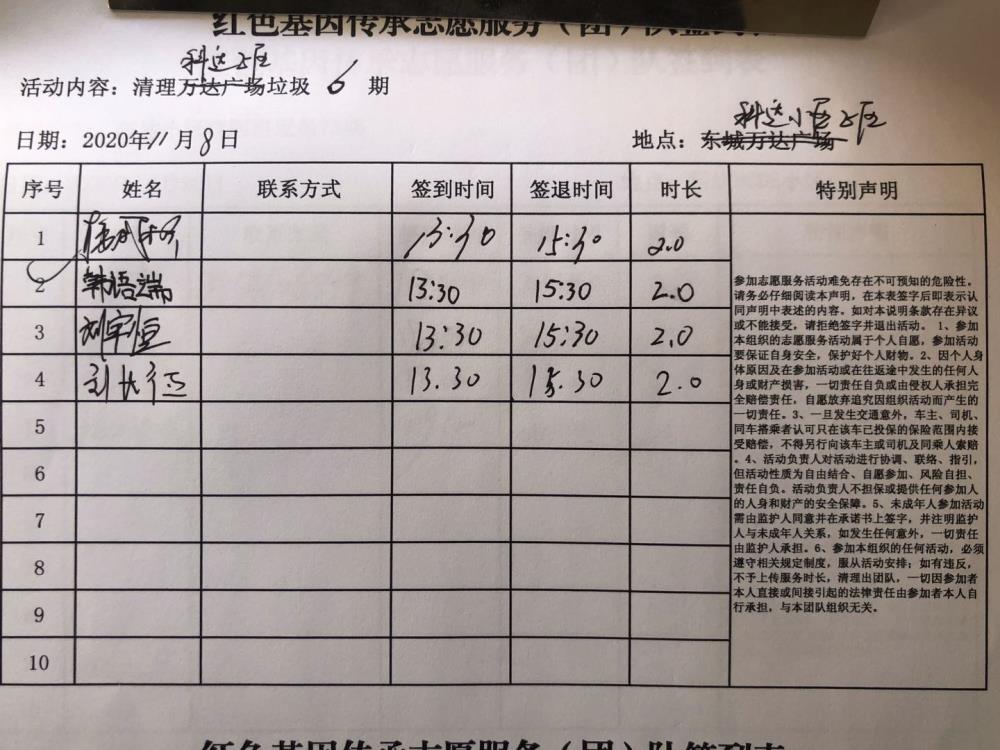 红色基因传承志愿服务（团）队签到表
科达小区
活动内容：清理万达广场垃圾 6 期
科达小区
日期：2020年11月8日 地点：东城万达广场
序号 姓名 联系方式 签到时间 签退时间 时长 特别声明
1 13:30 15:30 2.0
2 韩语端 13:30 15:30 2.0
3 刘宇恒 13:30 15:30 2.0
4 13.30 15.30 2.0
5
6
7
8
9
10
参加志愿服务活动难免存在不可预知的危险性。
请务必仔细阅读本声明，在本表签字后即表示认
同声明中表述的内容。如对本说明条款存在异议
或不能接受，请拒绝签字并退出活动。 1、参加
本组织的志愿服务活动属于个人自愿，参加活动
要保证自身安全，保护好个人财物。2、因个人身
体原因及在参加活动或在往返途中发生的任何人
身或财产损害，一切责任自负或由侵权人承担完
全赔偿责任，自愿放弃追究因组织活动而产生的
一切责任。3、一旦发生交通意外，车主、司机、
同车搭乘者认可只在该车已投保的保险范围内接
受赔偿，不得另行向该车主或司机及同乘人索赔
。4、活动负责人对活动进行协调、联络、指引，
但活动性质为自由结合、自愿参加、风险自担、
责任自负。活动负责人不担保或提供任何参加人
的人身和财产的安全保障。5、未成年人参加活动
需由监护人同意并在承诺书上签字，并注明监护
人与未成年人关系，如发生任何意外，一切责任
由监护人承担。6、参加本组织的任何活动，必须
遵守相关规定制度，服从活动安排；如有违反，
不予上传服务时长，清理出团队，一切因参加者
本人直接或间接引起的法律责任由参加者本人自
行承担，与本团队组织无关。
红色基因传承志愿服务（团）队签到表